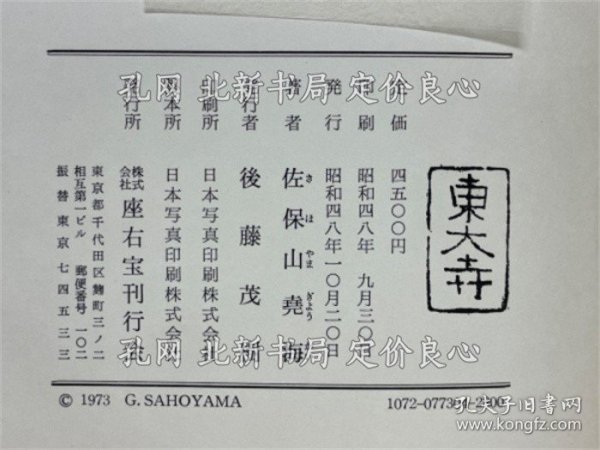 東大寺
定価 四五〇〇円
印刷 昭和四八年 九月三〇日
発行 昭和四八年一〇月二〇日
著者 佐保山堯海
さほやまぎょうかい
発行者 後藤茂
印刷所 日本写真印刷株式会社
製本所 日本写真印刷株式会社
発行所 株式会社 座右宝刊行会
東京都千代田区麹町三ノ二
相互第一ビル 郵便番号 一〇二
振替東京 七四五三三
© 1973 G. SAHOYAMA
孔网 北新书局 定价良心
孔网 北新书局 定价良心
孔网 北新书局 定价良心
孔夫子旧书网
www.kongfz.com